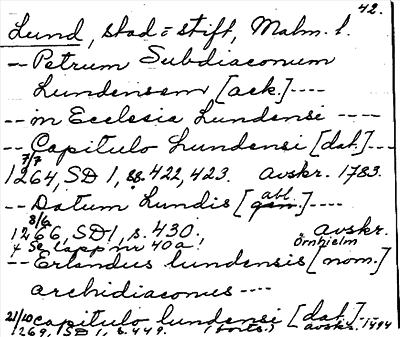 42.
Lund, stad o stift, Malm. l.
-- Petrum Subdiaconum
Lundensem [ack.] ----
-- in Ecclesia Lundensi ----
-- Capitulo Lundensi [dat.] ---
7/7
1264, SD 1, ss. 422, 423. avskr. 1783.
-- Datum Lundis [abl.] ----
8/6
1266, SD 1, s. 430. avskr.
+ Se lapp nr 40a! Örnhielm
-- Erlandus lundensis [nom.]
archidiaconus ----
21/10 capitulo lundensi [dat.] --
1269, SD 1, s. 449. (forts.) avskr. 1494